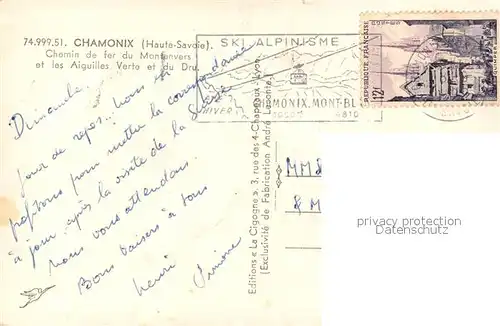 74.999.51. CHAMONIX (Haute-Savoie).
Chemin de fer du Montenvers
et les Aiguilles Verte et du Dru.
SKI ALPINISME
HIVER
CHAMONIX.MONT-BL
4810
REPUBLIQUE FRANÇAISE
POSTES
12F
Dimanche
jour de repos.. Nous en
profitons pour mettre la correspondance
à jour après la visite de la
Nous vous attendons.
Bons baisers à tous
Henri Simone
Editions « La Cigogne », 3, rue des 4-Chapeaux, Lyon.
(Exclusivité de Fabrication André Leconte).
MM
& M
privacy protection
Datenschutz